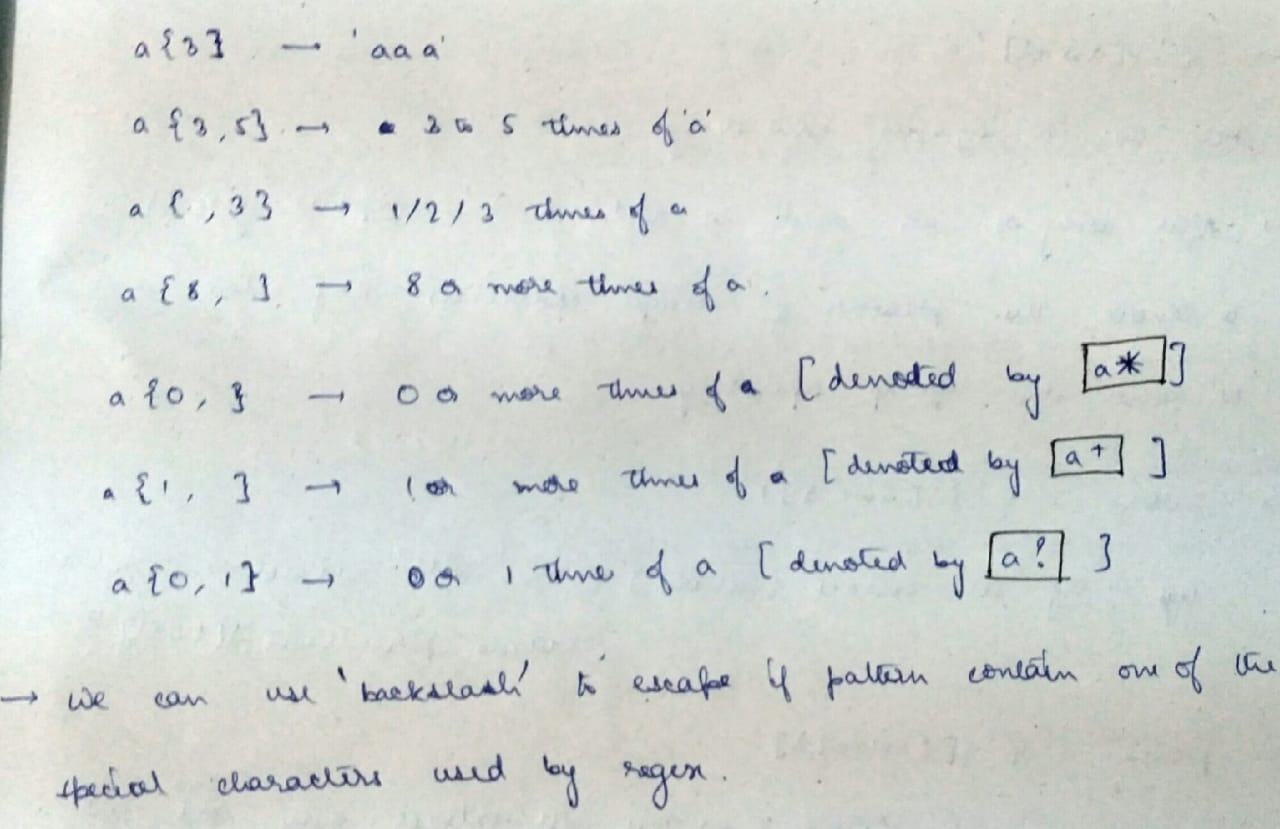 a {3} → 'aaa'
a {3,5} → 3 to 5 times of 'a'
a {,3} → 1/2/3 times of a
a {8, } → 8 or more times of a.
a {0, } → 0 or more times of a [denoted by a*]
a {1, } → 1 or more times of a [denoted by a+]
a {0,1} → 0 or 1 time of a [denoted by a?]
→ we can use 'backslash' to escape if pattern contain one of the
special characters used by regex.